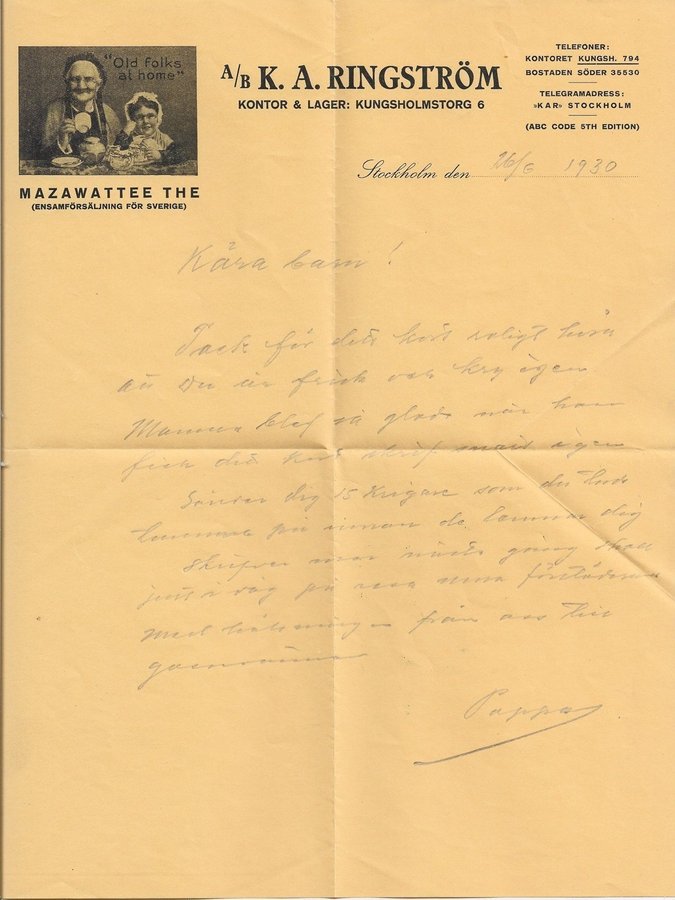 "Old folks
at home"
MAZAWATTEE THE
(ENSAMFÖRSÄLJNING FÖR SVERIGE)
A/B K. A. RINGSTRÖM
KONTOR & LAGER: KUNGSHOLMSTORG 6
TELEFONER:
KONTORET KUNGSH. 794
BOSTADEN SÖDER 35530
TELEGRAMADRESS:
»KAR» STOCKHOLM
(ABC CODE 5TH EDITION)
Stockholm den 26/6 1930
Kära barn!
Tack för ditt kort roligt höra
att Du är frisk och kry igen
Mamma blef så glad när hon
fick ditt kort skrif igen
Sänder dig 15 som du
på innan de lemnar dig
Skrifver mer nästa gång skall
just i dag på resa
Med hälsningar från oss till
Pappa